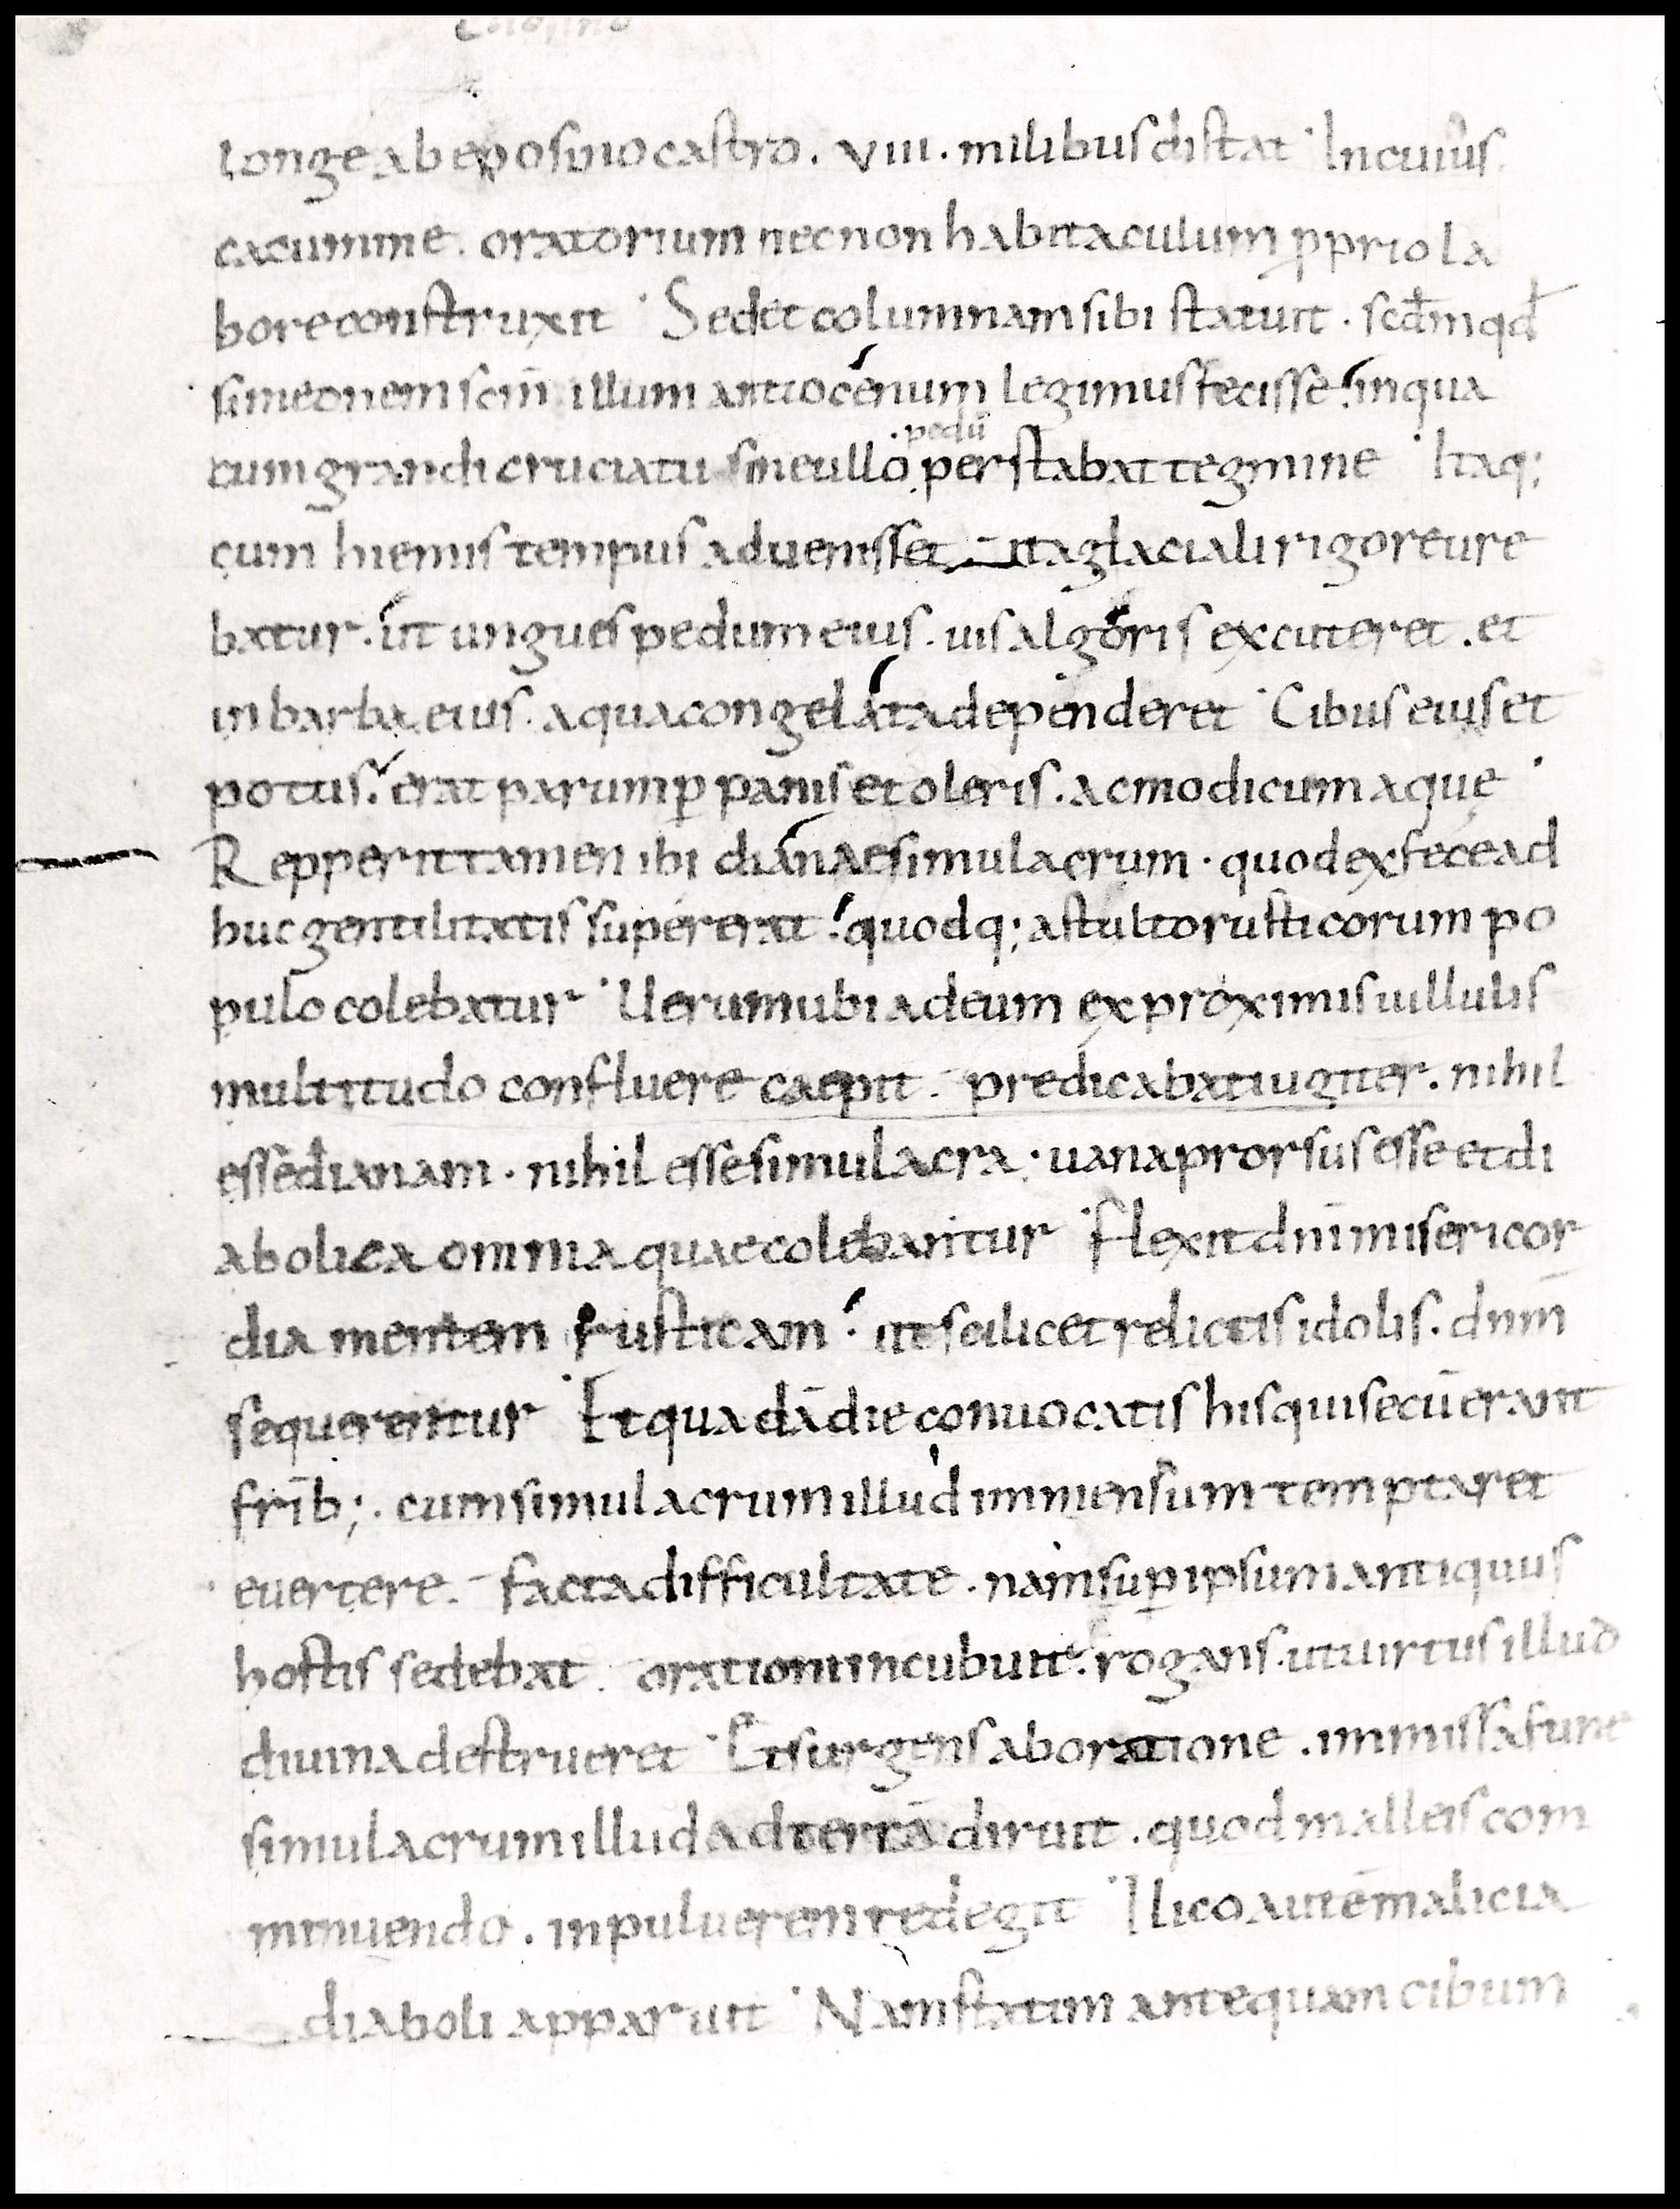 longe ab eposino castro . VIII . milibus distat · In cuius
cacumine . oratorium nec non habitaculum ꝓprio la
bore construxit · Sed et columnam sibi statuit . scdmqd
simeonem scm̄ illum antiocenum legimus fecisse ! in qua
pedū
cum grandi cruciatu sine ullo perstabat tegmine · Itaq;
cum hiemis tempus aduenisset ita glaciali rigore ure
batur . ut ungues pedum eius . uis algoris excuteret . et
in barba eius . aqua congelata dependeret · Cibus eius et
potus . erat parumꝑ panis et oleris . ac modicum aquę ·
Repperit tamen ibi dianae simulacrum . quod ex fece ad
huc gentilitatis supererat ! quodq; a stulto rusticorum po
pulo colebatur · Uerum ubi ad eum ex proximis uillulis
multitudo confluere caepit . predicabat iugiter . nihil
esse dianam . nihil esse simulacra . uana prorsus esse et di
abolica omnia quae colebantur · Flexit dnī misericor
dia mentem rusticam ! ut scilicet relictis idolis . dnm̄
sequerentur · Et quadā die conuocatis his qui secū erant
frīb; . cum simulacrum illud immensum temptaret
euertere . facta difficultate . nam suꝑ ipsum antiquus
hostis sedebat . orationi incubuit . rogans . ut uirtus illud
diuina destrueret · Et surgens ab oratione . immissa fune
simulacrum illud ad terrā diruit . quod malleis com
minuendo . in puluerem redegit · Ilico autē malicia
diaboli apparuit · Nam statim antequam cibum